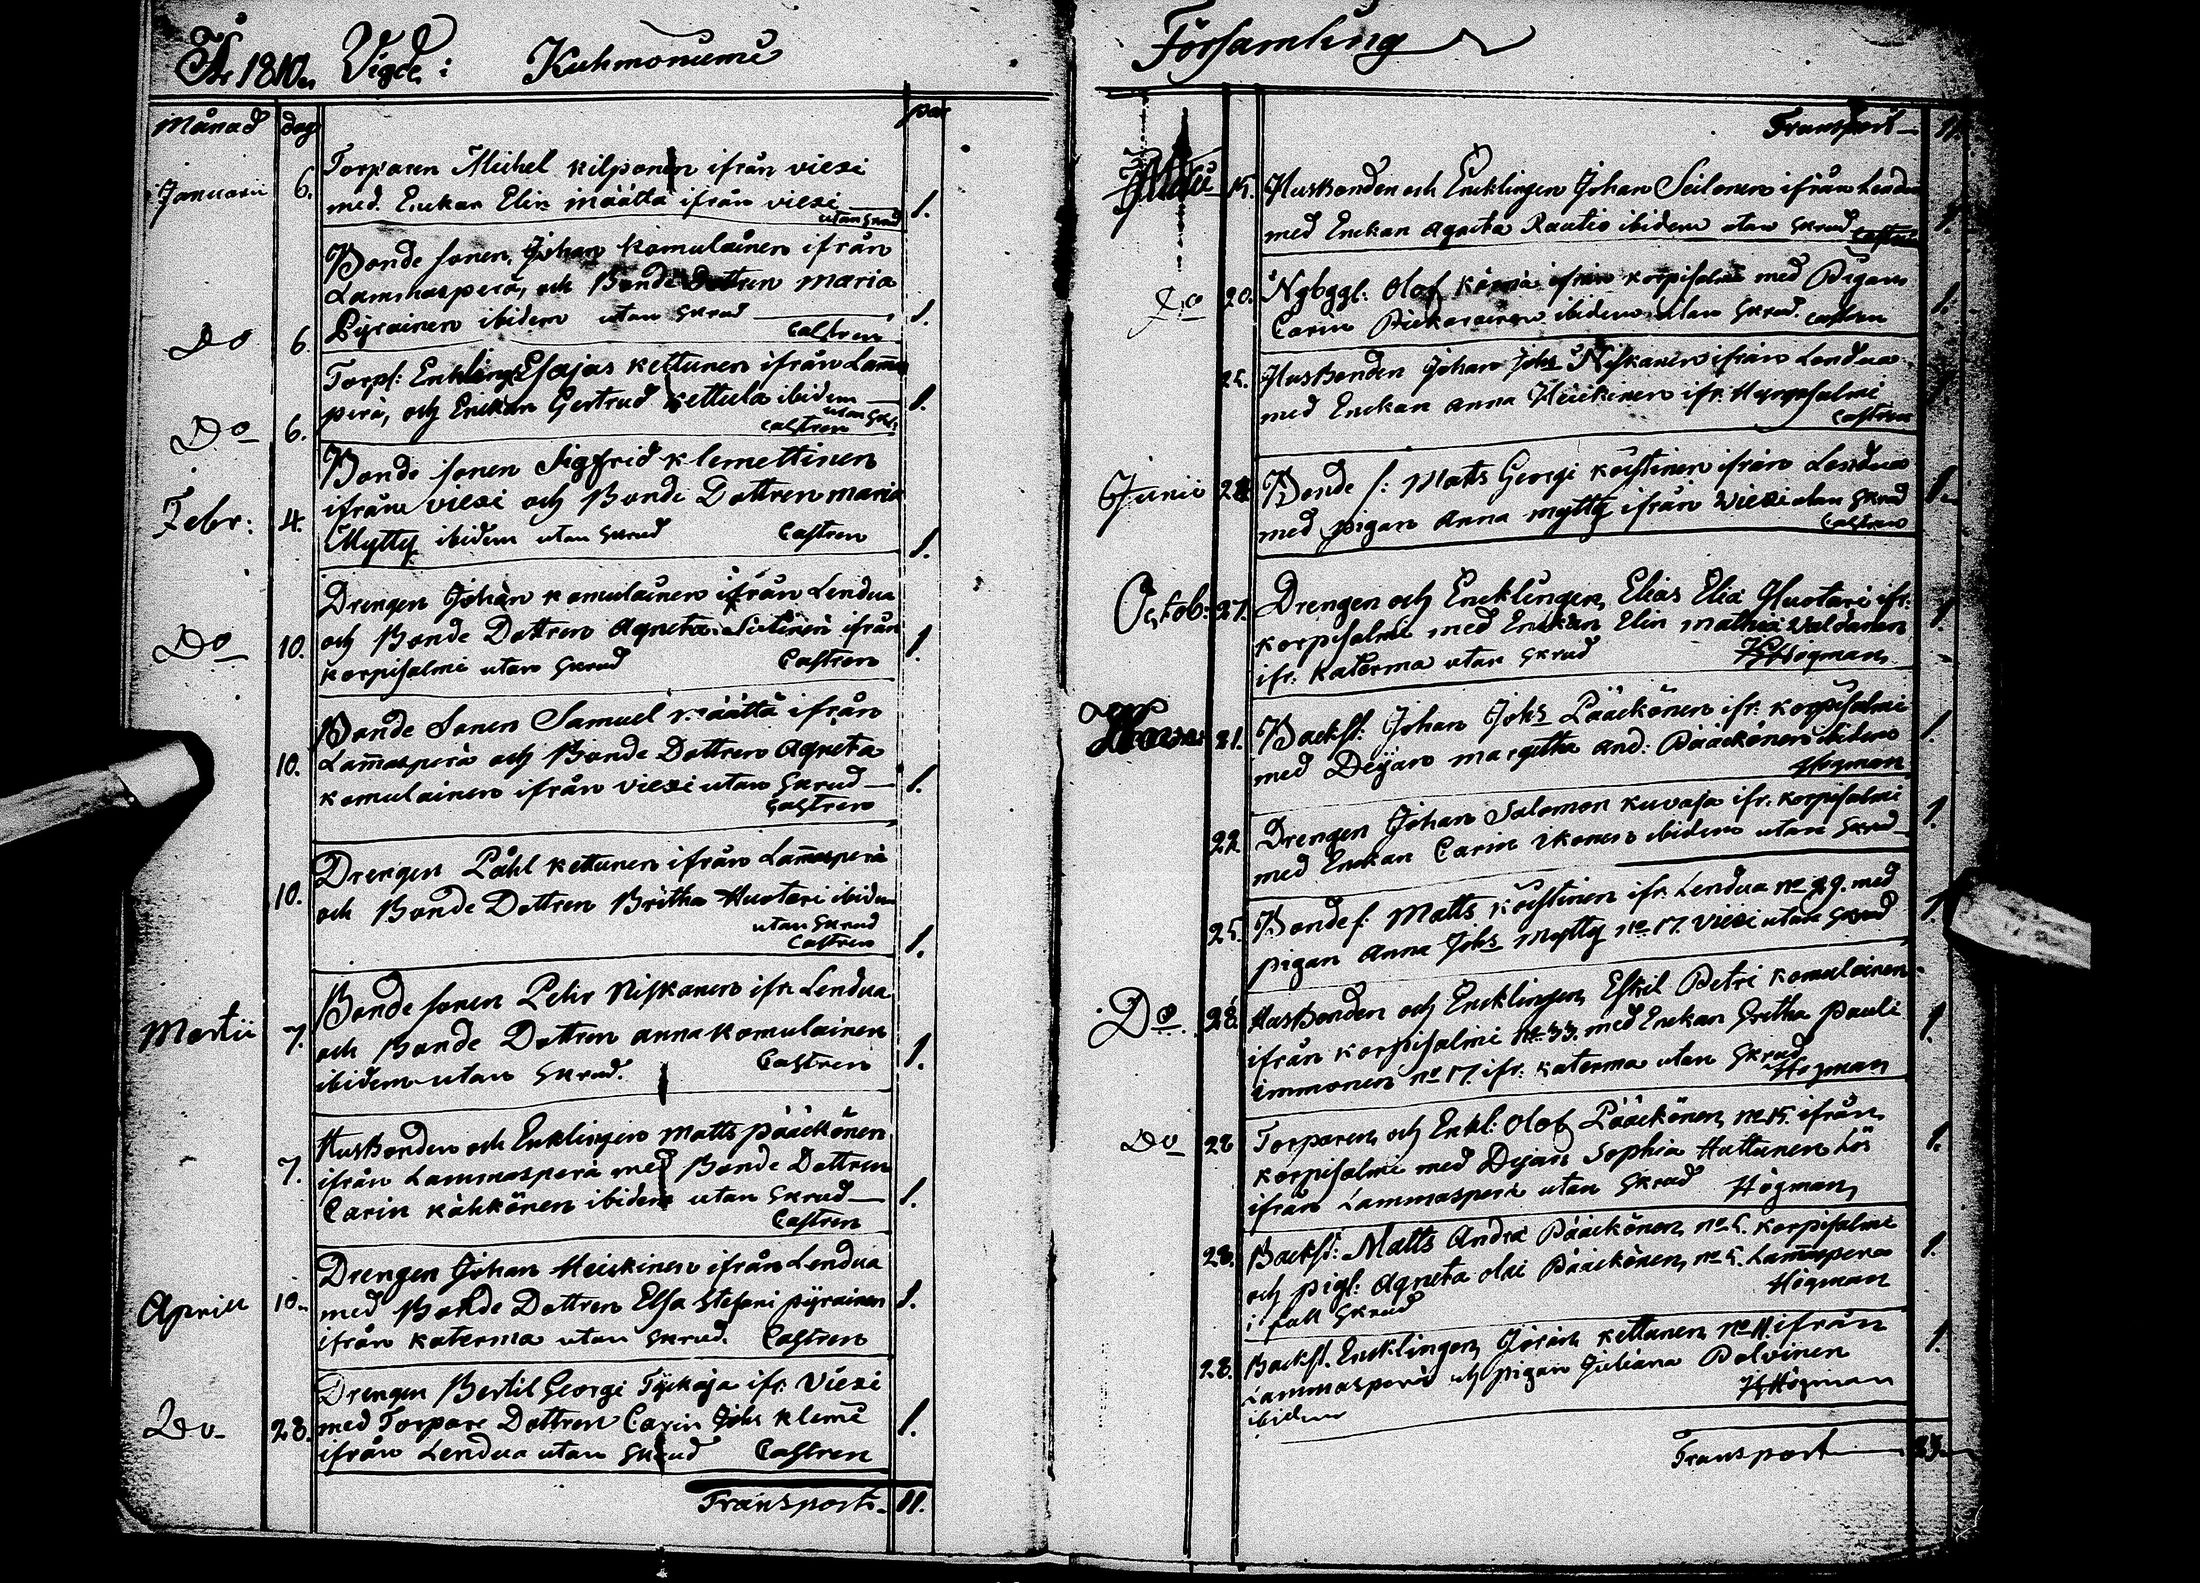 År 1810. Vigde i Kuhmoniemi
Månad dag par
Januarii 6. Torparen Michel Kilponen ifrån Viexi
med Enckan Elin Määttä ifrån Viexi 1.
utan skrud
Bonde sonen Johan Komulainen ifrån
Lammasperä, och Bonde Dottren Maria
Do 6. Pyrainen ibidem utan skrud 1.
Castren
Torps: Enkling Esajas Kettunen ifrån Lamas
perä, och Enckan Gertrud Kettula ibidem 1.
Do 6. utan skr:
Castren
Bonde sonen Sigfrid Klemettinen
Febr: 4. ifrån Viexi och Bonde Dottren Maria
Mytty ibidem utan skrud Castren 1.
Drengen Johan Komulainen ifrån Lendua
Do 10. och Bonde Dottren Agneta ifrån 1.
Korpisalmi utan skrud Castren
Bonde Sonen Samuel Määttä ifrån
10. Lamasperä och Bonde Dottren Agneta
Komulainen ifrån Viexi utan skrud 1.
Castren
Drengen Påhl Kettunen ifrån Lamasperä
10. och Bonde Dottren Britha Huotari ibidem
utan skrud
Castren 1.
Bonde sonen Pehr Niskanen ifr. Lendua
Martii 7. och Bonde Dottren Anna Komulainen
ibidem utan skrud. Castren 1.
Husbonden och Enklingen Matts Pääckönen
7. ifrån Lammasperä med Bonde Dottren
Carin Kähkönen ibidem utan skrud 1.
Castren
Drengen Johan Heickinen ifrån Lendua
Aprill 10. med Bonde Dottren Elsa Stefani Pyrainen 1.
ifrån Katerma utan skrud. Castren
Drengen Bertil Georgi Tyckäja ifr. Viexi
Do 28. med Torpare Dottren Carin Johs Klemē 1.
ifrån Lendua utan skrud Castren
Transport 11.
Församling
Transport 11.
15. Husbonden och Encklingen Johan Seilonen ifrån Lendua
med Enckan Agneta Rautio ibidem utan skrud 1.
Castren
Do 20. Nybggl: Olof ifrån Korpisalmi med Pigan
Carin ibidem utan skrud. Castren 1.
25. Husbonden Johan Johs Niskanen ifrån Lendua
med Enckan Anna Heickinen ifr. 1.
Castren
Junii 24. Bonde s: Matts Georgi Köistinen ifrån Lendua
med pigan Anna Mytty ifrån Wiexi utan skrud 1.
Castren
Octob: 27. Drengen och Encklingen Elias Eliæ Huotari ifr:
Korpisalmi med Enckan Elin Mathiæ Waldanen 1.
ifr. Katerma utan skrud Högman
21. Backst: Johan Johs Pääckönen ifr. Korpisalmi
med Dejan Margetha And: Pääckönen ibidem 1.
Högman
22. Drengen Johan Salomon Kuvaja ifr. Korpisalmi
med Enckan Carin Ikonen ibidem utan skrud 1.
25. Bonde s: Matts Köistinen ifr. Lendua No 29. med
pigan Anna Johs Mytty No 17. Viexi utan skrud 1.
Do 28. Husbonden och Encklingen Eskil Petri Komulainen
ifrån Korpisalmi No 33. med Enckan Gretha Pauli 1.
Immonen No 17. ifr: Katerma utan skrud
Högman
Do 28 Torparen och Enkl: Olof Pääckönen No 15. ifrån
Korpisalmi med Dejan Sophia Huttunen Lös 1.
ifrån Lammasperä utan skrud Högman
28. Backst: Matts Andræ Pääckönen No 5. Korpisalmi
och pigl: Agneta Olai Pääckönen No 5. Lamasperä 1.
i full skrud Högman
28. Backst. Encklingen Jöran Kettunen No 11. ifrån
Lammasperä och pigan Juliana Polvinen 1.
ibidem Högman
Transport 23.